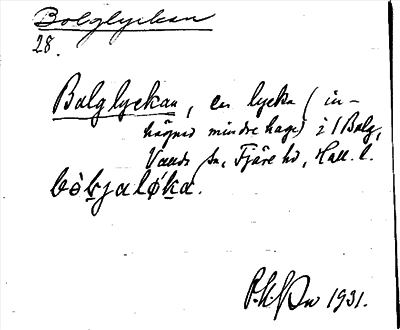 Bolglyckan
28.
Bolglyckan, en lycka (in-
hägnad mindre hage) i 1 Bolg,
Vands sn, Fjäre hd, Hall. l.
bòḵjaló̱ḵa.
1931.